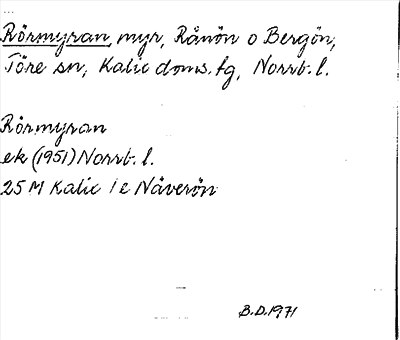 Rörmyran, myr, Rånön o Bergön,
Töre sn, Kalix doms. tg, Norrb. l.
Rörmyran
ek (1951) Norrb. l.
25 M Kalix 1 e Näverön
B.D. 1971